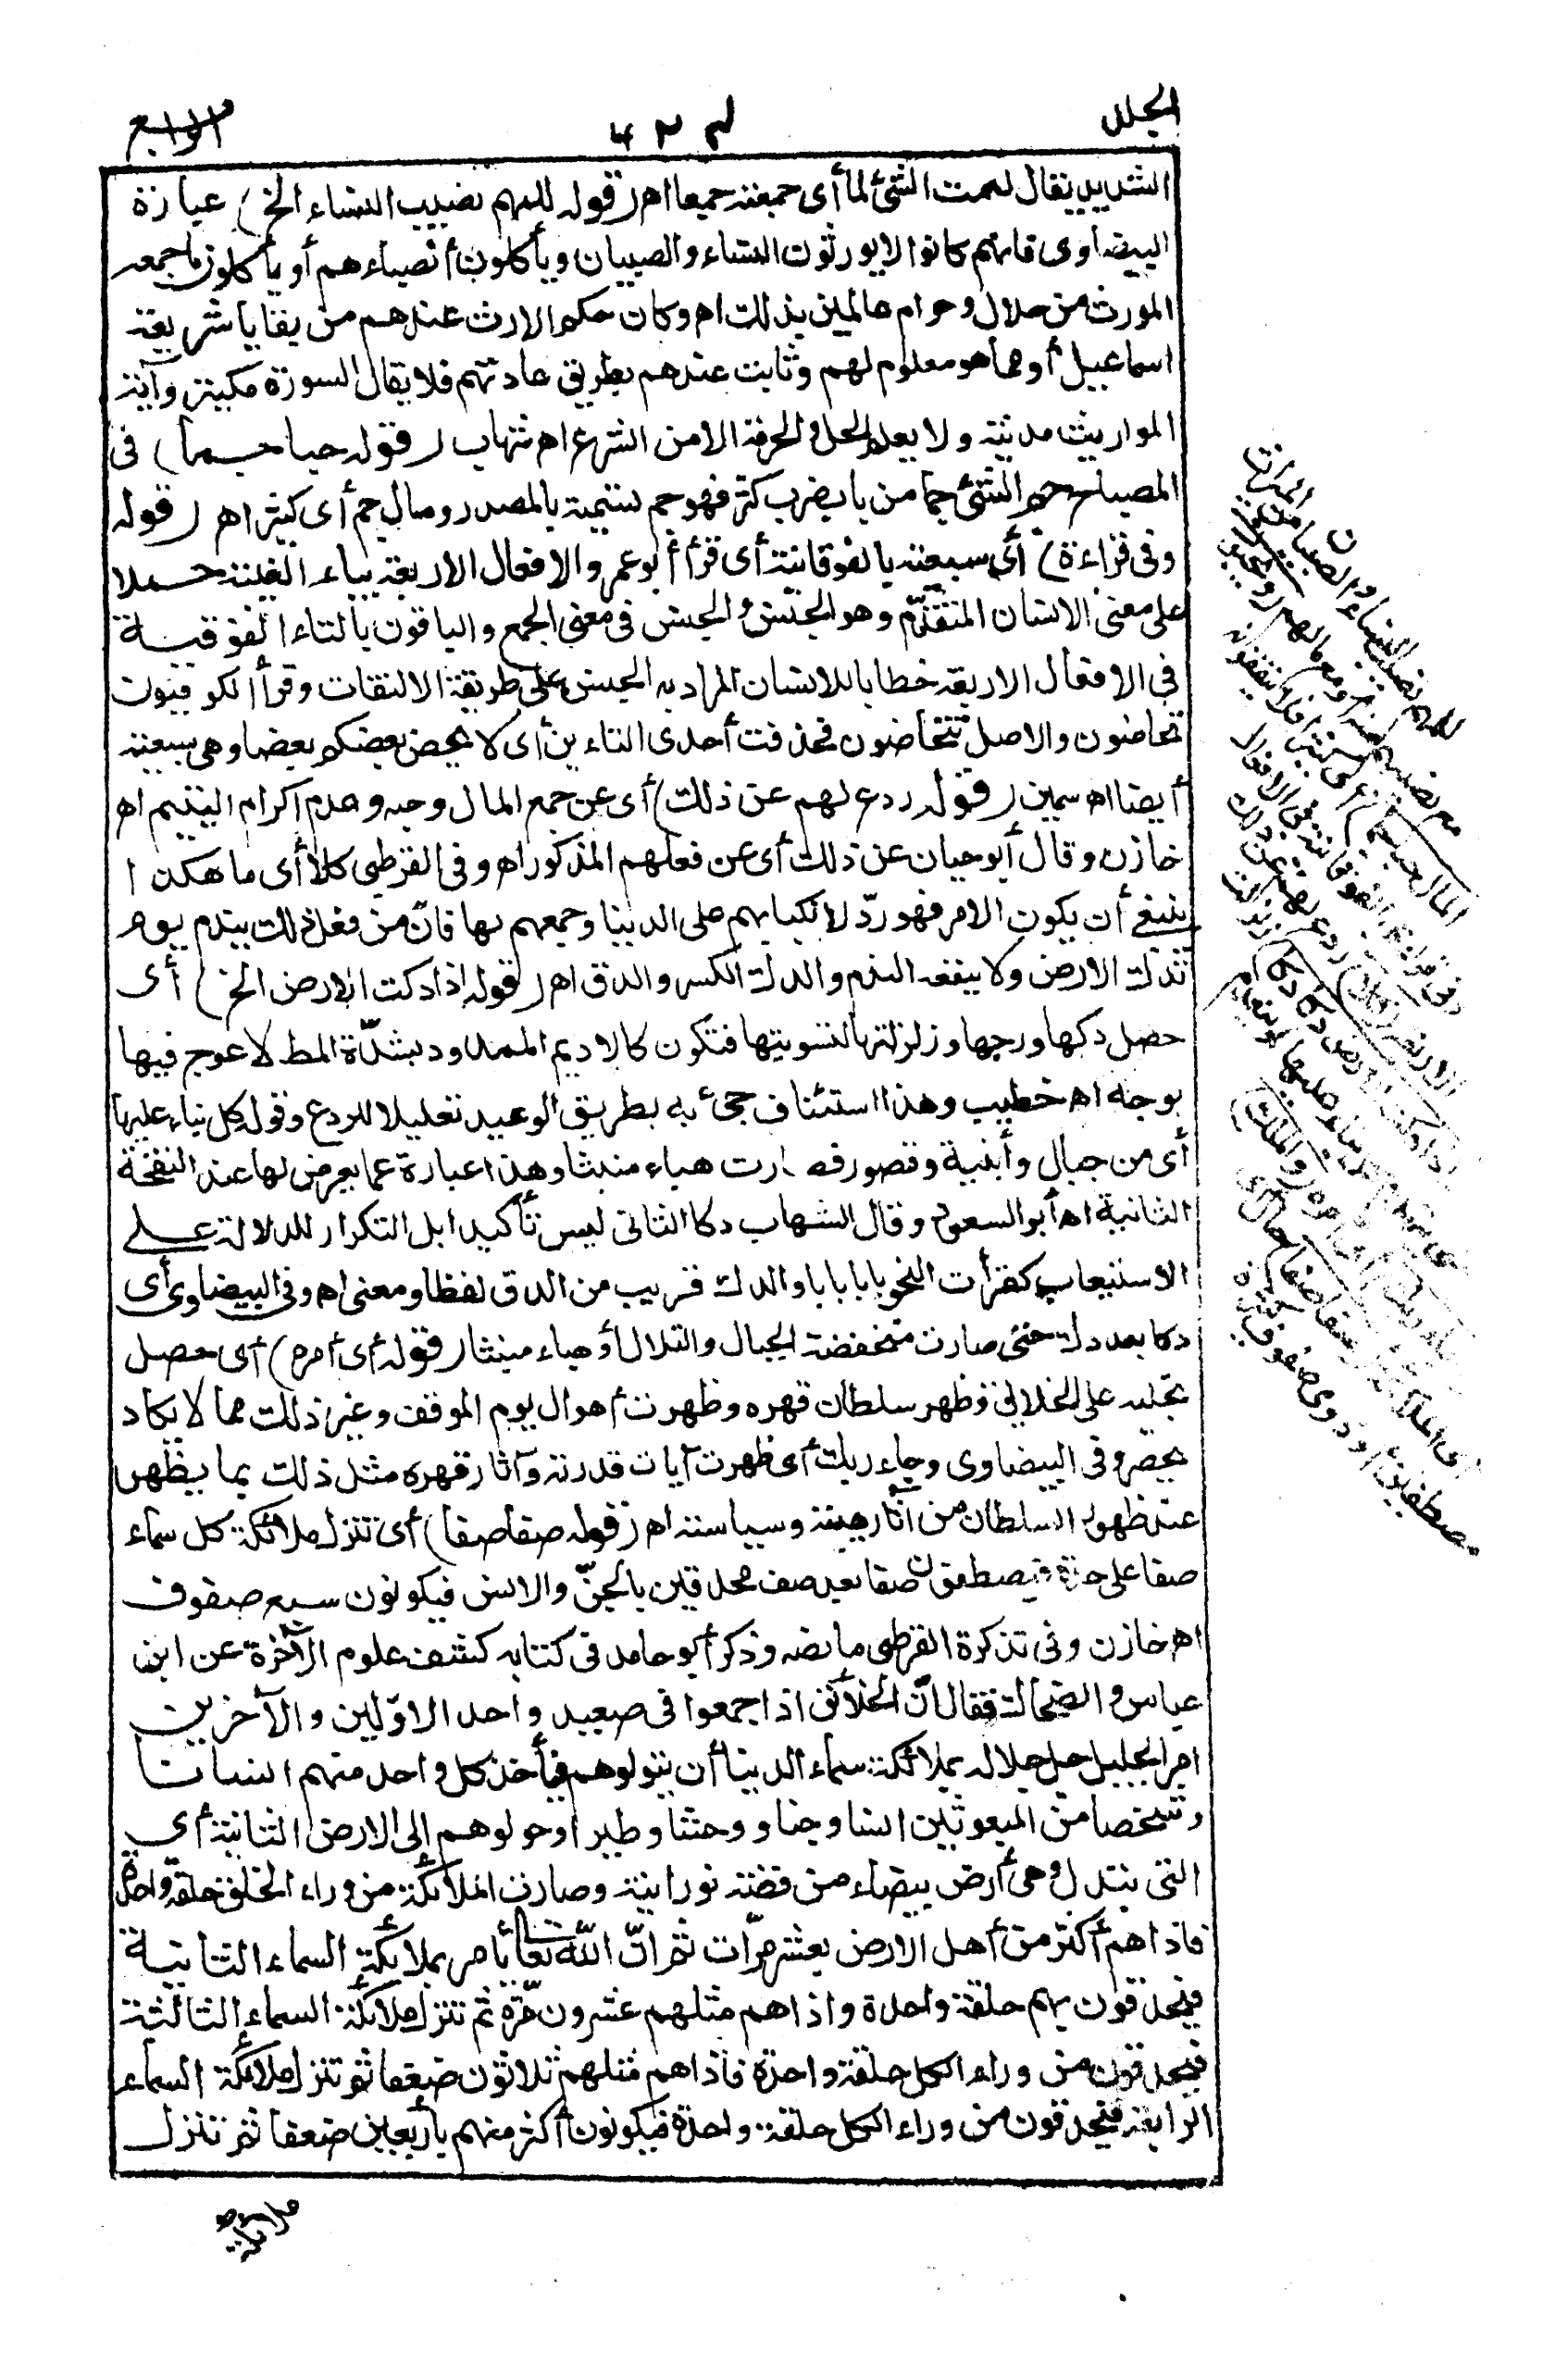 الجلد
الرابع
الشديد يقال لممت الشئ لما أى جمعته جميعا اه (قوله للهم نصيب النساء الخ) عبارة
البيضاوى فانهم كانوا لايورثون النساء والصبيان ويأكلون أنصباءهم أو يأكلون ما جمعه
المورث من حلال وحرام عالمين بذلك اه وكان حكم الارث عندهم من بقايا شريعة
اسماعيل أو مما هو معلوم لهم وثابت عندهم بطريق عادتهم فلا يقال السورة مكية وآية
المواريث مدنية ولا يعلم الحل والحرمة الا من الشرع اه شهاب (قوله حبا جما) فى
المصباح جم الشئ جما من باب ضرب كثر فهو جم تسمية بالمصدر ومال جم أى كثير اه (قوله
وفى قراءة) أى سبعية بالفوقانية أى قرأ أبو عمرو الافعال الاربعة بياء الغيبة حملا
على معنى الانسان المتقدّم وهو الجنس والجنس فى معنى الجمع والباقون بالتاء الفوقية
فى الافعال الاربعة خطابا للانسان المراد به الجنس على طريقة الالتفات وقرأ الكوفيون
تحاضون والاصل تتحاضون فحذفت أحدى التاءين أى لا يحض بعضكم بعضا وهى سبعية
أيضا اه سمين (قوله ردع لهم عن ذلك) أى عن جمع المال وحبه وعدم اكرام اليتيم اه
خازن وقال أبو حيان عن ذلك أى عن فعلهم المذكور اه وفى القرطبى كلا أى ما هكذا
ينبغى أن يكون الامر فهو ردّ لانكبابهم على الدنيا وجمعهم لها فانّ من فعل ذلك يندم يوم
تدك الارض ولا ينفعه الندم والدك الكسر والدق اه (قوله اذا دكت الارض الخ) أى
حصل دكها ورجها وزلزلتها لتسويتها فتكون كالاديم الممدود بشدّة المط لا عوج فيها
بوجه اه خطيب وهذا استئناف جئ به بطريق الوعيد تعليلا للردع وقوله كل بناء عليها
أى من جبال وأبنية وقصور فصارت هباء منبثا وهذا عبارة عما يعرض لها عند النفخة
الثانية اه أبو السعود وقال الشهاب دكا الثانى ليس تأكيدا بل التكرار للدلالة على
الاستيعاب كقرأت النحو بابا بابا والدك قريب من الدق لفظا ومعنى اه وفى البيضاوى أى
دكا بعد دك حتى صارت منخفضة الجبال والتلال أو هباء منبثا (قوله أى أمره) أى حصل
تجليه على الخلائق وظهر سلطان قهره وظهرت أهوال يوم الموقف وغير ذلك مما لا يكاد
يحصر وفى البيضاوى وجاء ربك أى ظهرت آيات قدرته وآثار قهره مثل ذلك بما يظهر
عند ظهور السلطان من آثار هيبته وسياسته اه (قوله صفا صفا) أى تتنزل ملائكة كل سماء
صفا على حدة فيصطفون صفا بعد صف محدقين بالجنّ والانس فيكونون سبع صفوف
اه خازن وفى تذكرة القرطبى ما نصه وذكر أبو حامد فى كتابه كشف علوم الآخرة عن ابن
عباس والضحاك فقال انّ الخلائق اذا جمعوا فى صعيد واحد الاوّلين والآخرين
امر الجليل جل جلاله بملائكة سماء الدنيا أن يتولوهم فيأخذ كل واحد منهم انسانا
وشخصا من المبعوثين انسا وجنا ووحشا وطيرا وحولوهم إلى الارض الثانية أى
التى تبدل وهى أرض بيضاء من فضة نورانية وصارت الملائكة من وراء الخلق حلقة واحدة
فاذا هم أكثر من أهل الارض بعشر مرّات ثم انّ الله تعالى يأمر بملائكة السماء الثانية
فيحدقون بهم حلقة واحدة واذا هم مثلهم عشرون مرّة ثم تنزل ملائكة السماء الثالثة
فيحدقون من وراء الكل حلقة واحدة فاذا هم مثلهم ثلاثون ضعفا ثم تنزل ملائكة السماء
الرابعة فيحدقون من وراء الكل حلقة واحدة فيكونون أكثر منهم بأربعين ضعفا ثم تنزل